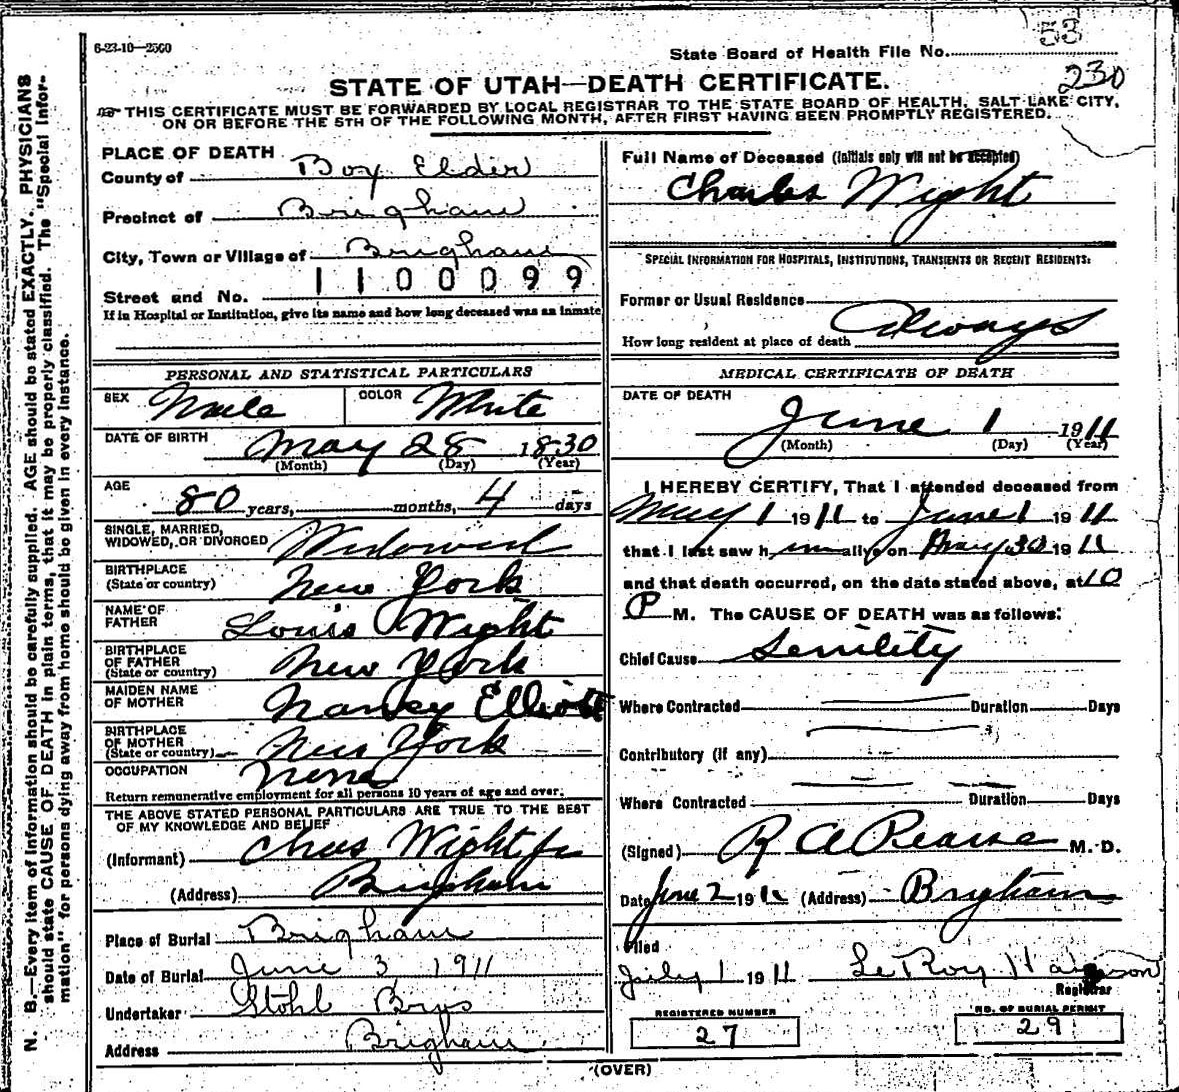 6-23-10—2500
53
State Board of Health File No.
230
STATE OF UTAH—DEATH CERTIFICATE.
THIS CERTIFICATE MUST BE FORWARDED BY LOCAL REGISTRAR TO THE STATE BOARD OF HEALTH, SALT LAKE CITY,
ON OR BEFORE THE 5TH OF THE FOLLOWING MONTH, AFTER FIRST HAVING BEEN PROMPTLY REGISTERED.
N. B.—Every item of Information should be carefully supplied. AGE should be stated EXACTLY. PHYSICIANS
should state CAUSE OF DEATH in plain terms, that it may be properly classified. The "Special Infor-
mation" for persons dying away from home should be given in every instance.
PLACE OF DEATH
County of Box Elder
Precinct of Brigham
City, Town or Village of Brigham
1100099
Street and No.
If in Hospital or Institution, give its name and how long deceased was an inmate
PERSONAL AND STATISTICAL PARTICULARS
SEX Male COLOR White
DATE OF BIRTH May 28 1830
(Month) (Day) (Year)
AGE
80 years, months, 4 days
SINGLE, MARRIED,
WIDOWED, OR DIVORCED Widowed
BIRTHPLACE
(State or country) New York
NAME OF
FATHER Louis Wight
BIRTHPLACE
OF FATHER
(State or country) New York
MAIDEN NAME
OF MOTHER Nancy Elliott
BIRTHPLACE
OF MOTHER
(State or country) New York
OCCUPATION None
Return remunerative employment for all persons 10 years of age and over:
THE ABOVE STATED PERSONAL PARTICULARS ARE TRUE TO THE BEST
OF MY KNOWLEDGE AND BELIEF
(Informant) Chas Wight Jr
(Address) Brigham
Place of Burial Brigham
Date of Burial June 3 1911
Undertaker Stohl Bros
Address Brigham
Full Name of Deceased (Initials only will not be accepted)
Charles Wight
SPECIAL INFORMATION FOR HOSPITALS, INSTITUTIONS, TRANSIENTS OR RECENT RESIDENTS:
Former or Usual Residence
How long resident at place of death Always
MEDICAL CERTIFICATE OF DEATH
DATE OF DEATH
June 1 1911
(Month) (Day) (Year)
I HEREBY CERTIFY, That I attended deceased from
May 1 1911 to June 1 1911
that I last saw him alive on May 30 1911
and that death occurred, on the date stated above, at 10
P M. The CAUSE OF DEATH was as follows:
Chief Cause Senility
Where Contracted Duration Days
Contributory (if any)
Where Contracted Duration Days
(Signed) R A Pearse M. D.
Date June 2 1911 (Address) Brigham
Filed
July 1 1911 LeRoy
Registrar
REGISTERED NUMBER
27
NO. OF BURIAL PERMIT
29
(OVER)